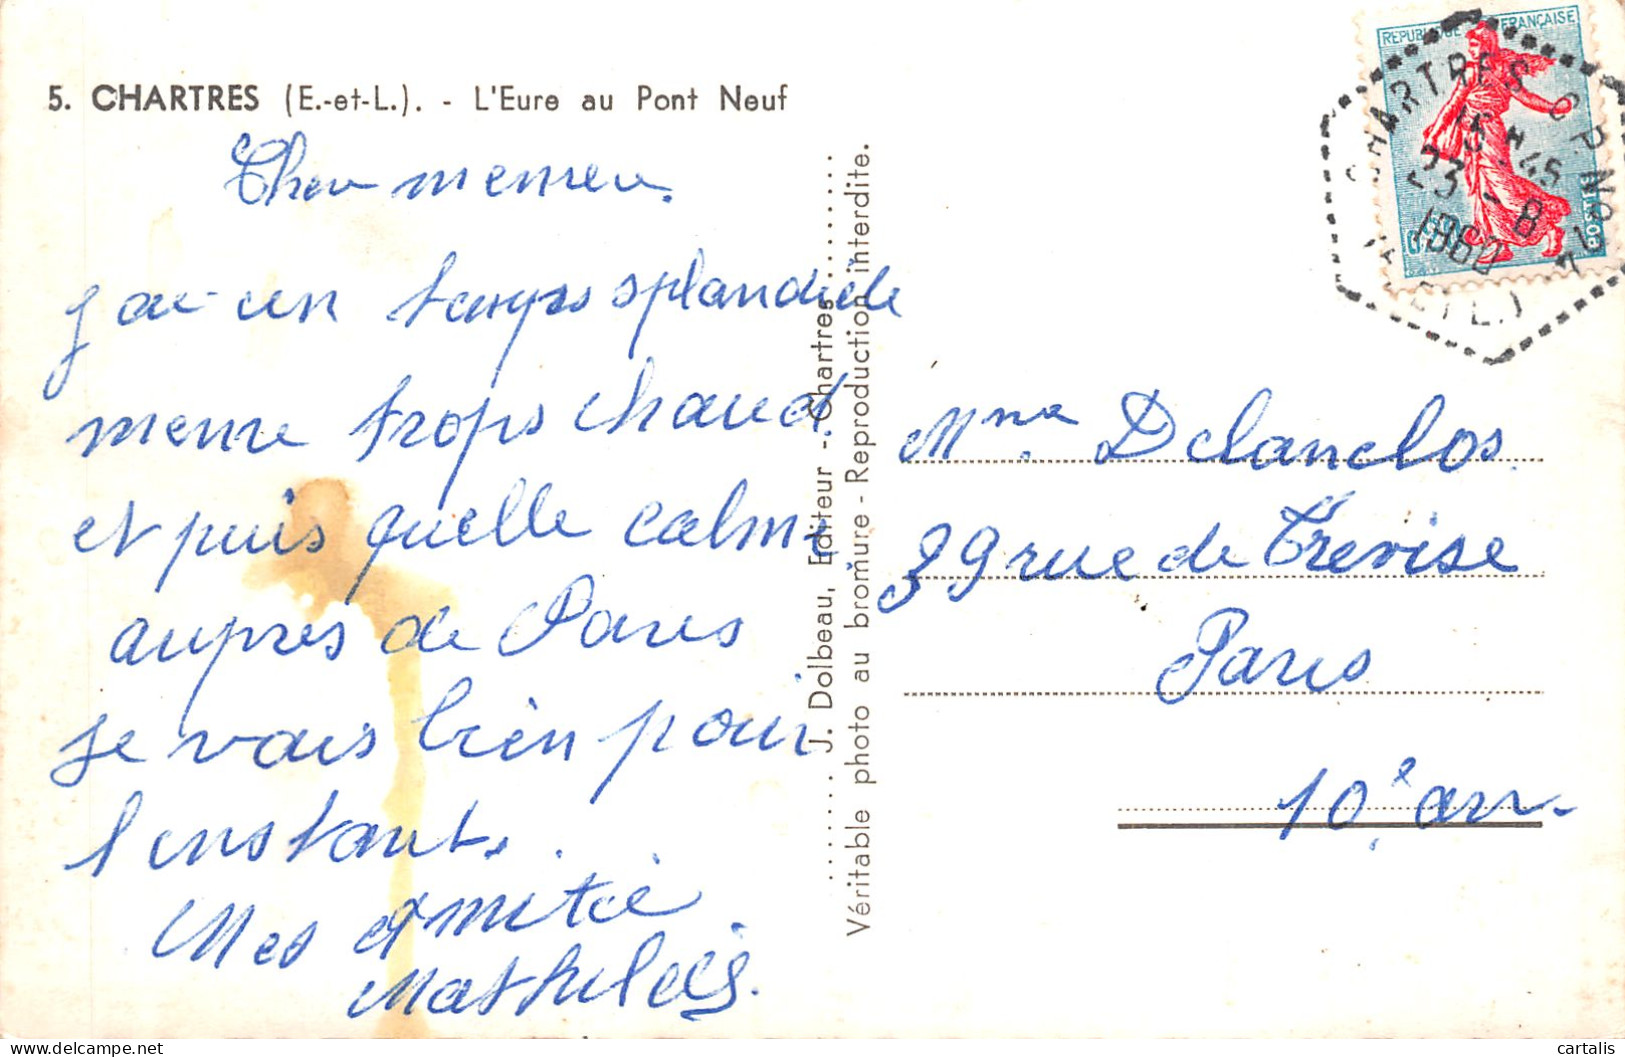 5. CHARTRES (E.-et-L.). - L'Eure au Pont Neuf
Cher memeu.
J ai un temps splandide
meme trops chaud.
et puis quelle calme
aupres de Paris
je vais bien pour
l instant.
Mes amitié
Mathilde
J. Dolbeau, Editeur - Chartres
Véritable photo au bromure - Reproduction interdite.
REPUBLIQUE FRANÇAISE
POSTES
CHARTRES C.P. Nº2
15H45
23-8
1960
(E. ET L.)
Mme Delanclos
39 rue de Trevise
Paris
10e arr
cartalis